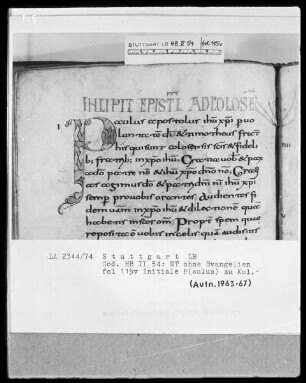 STUTTGART LB HB II 54
INCIPIT EPISTL AD COLOSEN
Paulus apostolus ihu xpi p uo
luntatem di & timotheus frater
his qui sunt colosensis scis & fidelib;
fratrib; in xpo ihu Gratia uobis & pax
a do patre no & ihu xpo dno no Gra
tias agimus do & patri dni ni ihu xpi
semper pro uobis orantes Audientes fi
dem uam in xpo ihu & dilectionem quam
habetis in scos om Propter spem quae
reposita e uobis in celis quam audistis
LA 2344/74 Stuttgart LB
Cod. HB II 54: NT ohne Evangelien
fol 115v Initiale P(aulus) zu Kol.
(Aufn. 1963-67)